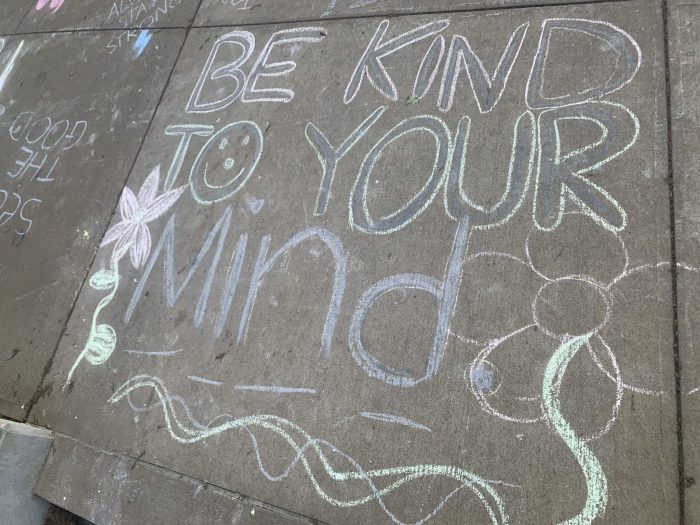 BE KIND
TO YOUR
Mind
STAY
STRONG
THE
GOOD